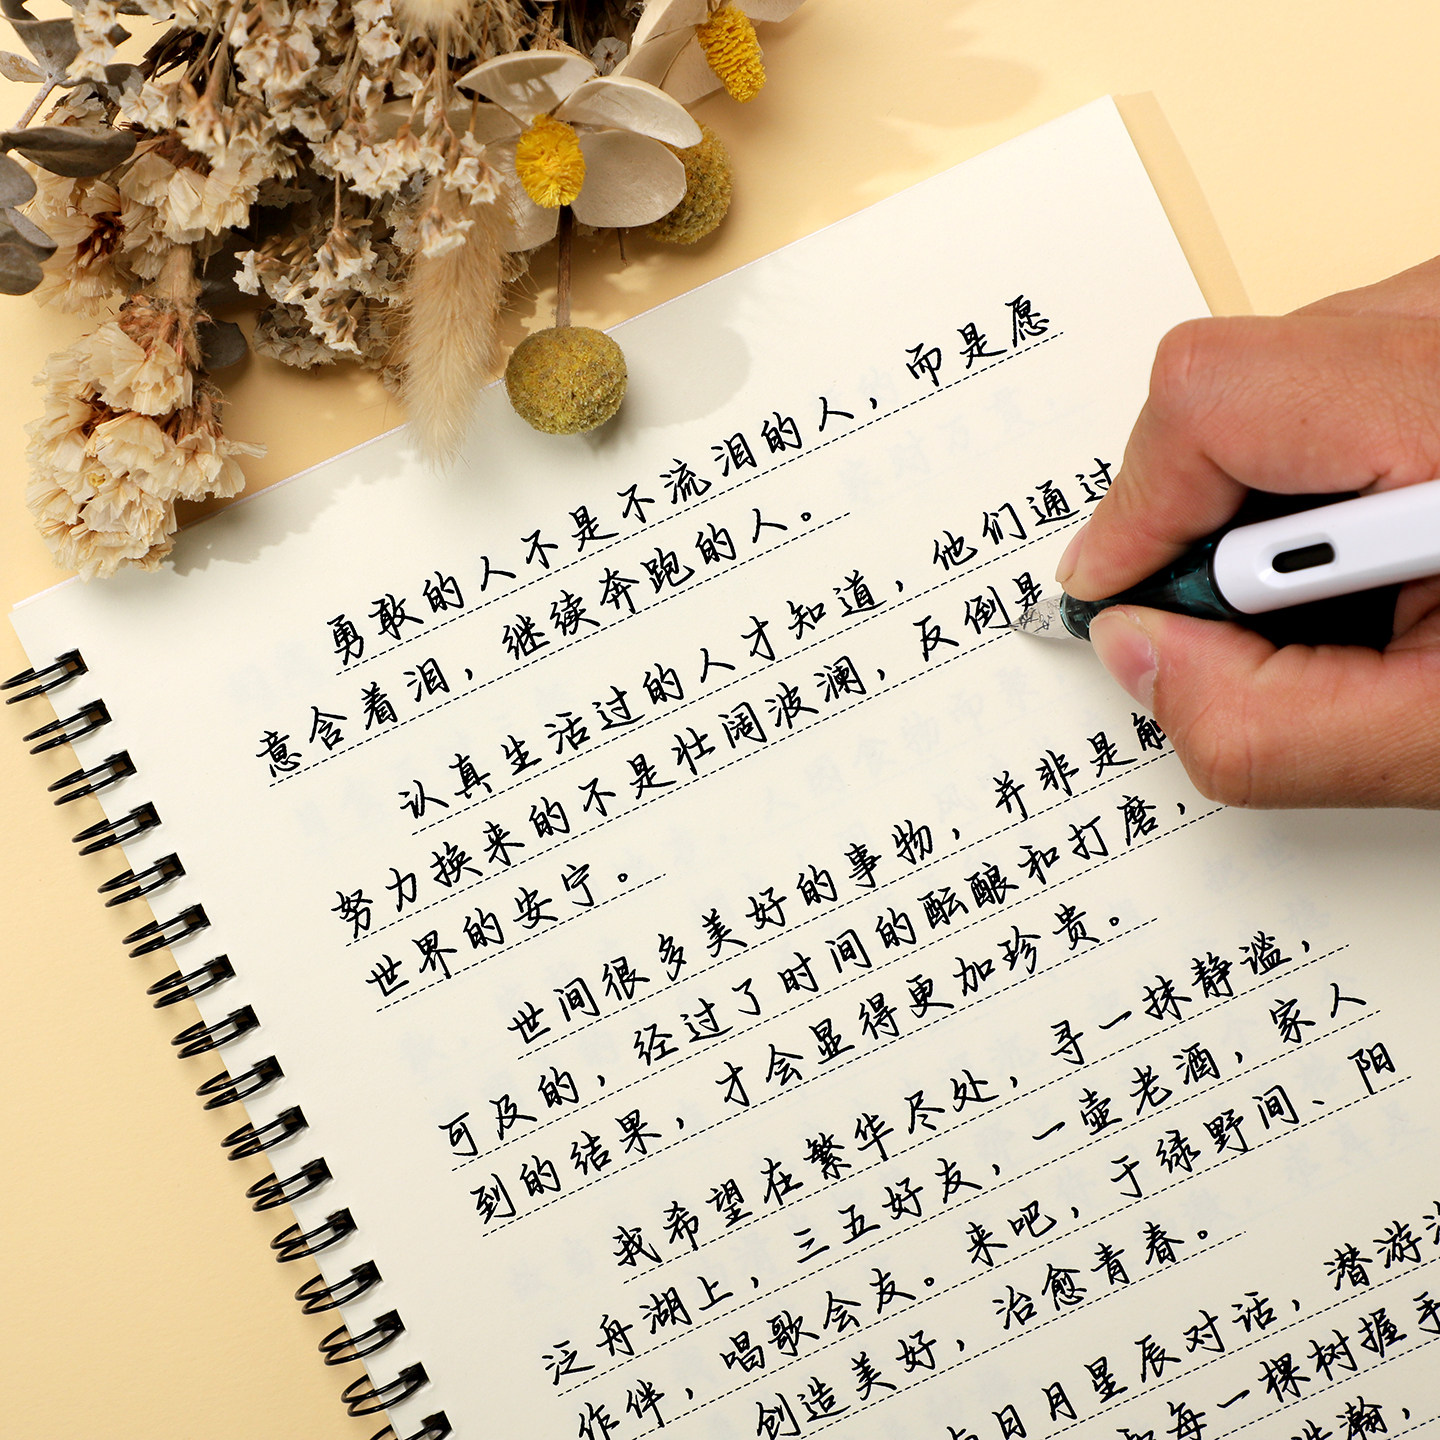 勇敢的人不是不流泪的人，而是愿
意含着泪，继续奔跑的人。
认真生活过的人才知道，他们通过
努力换来的不是壮阔波澜，反倒是
世界的安宁。
世间很多美好的事物，并非是触
可及的，经过了时间的酝酿和打磨，
到的结果，才会显得更加珍贵。
我希望在繁华尽处，寻一抹静谧，
泛舟湖上，三五好友，一壶老酒，家人
作伴，唱歌会友。来吧，于绿野间、阳
创造美好，治愈青春。
日月星辰对话，潜游
每一棵树握手
浩瀚，